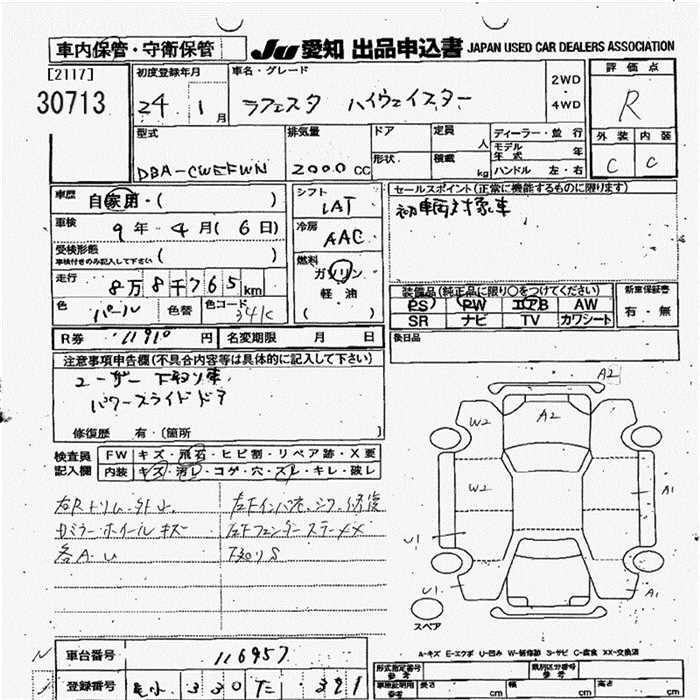 車内保管・守衛保管
JU 愛知 出品申込書 JAPAN USED CAR DEALERS ASSOCIATION
[2117]
30713
初度登録年月
24 1月
車名・グレード
ラフェスタ ハイウェイスター
2WD
・
4WD
評価点
R
型式
DBA-CWEFWN
排気量
2000 CC
ドア
形状
定員
人
積載
kg
ディーラー・並行
モデル年式 年
ハンドル 左・右
外装 内装
C C
車歴 自家用・( )
車検 9年 4月 (6日)
受検形態
車検付きのみ記入して下さい ( )
走行 8万8千765km
色 パール 色替 色コード 34K
シフト
IAT
冷房
AAC
燃料
ガソリン
軽油
( )
セールスポイント(正常に機能するものに限ります)
初車両対象車
装備品(純正品に限り○をつけてください)
PS PW エアB AW
SR ナビ TV カワシート
新車保証書
有・無
R券 11910円 名変期限 月 日
後日品
注意事項申告欄(不具合内容等は具体的に記入して下さい)
ユーザー下取り車
パワースライドドア
修復歴 有・(箇所 )
検査員
記入欄
FW キズ・飛石・ヒビ割・リペア跡・X要
内装 キズ・汚レ・コゲ・穴・スレ・キレ・破レ
ミラー・ホイールキズ
各A・U
下回りS
A2
W2 A2
W2
A1
U1
U1 A1
スペア
A-キズ E-エクボ U-凹み W-補修跡 S-サビ C-腐食 XX-交換済
車台番号 116957
登録番号 330 321
形式指定番号
参考
類別区分番号
参考
車庫証明用
参考
長さ 幅 高さ
cm cm cm